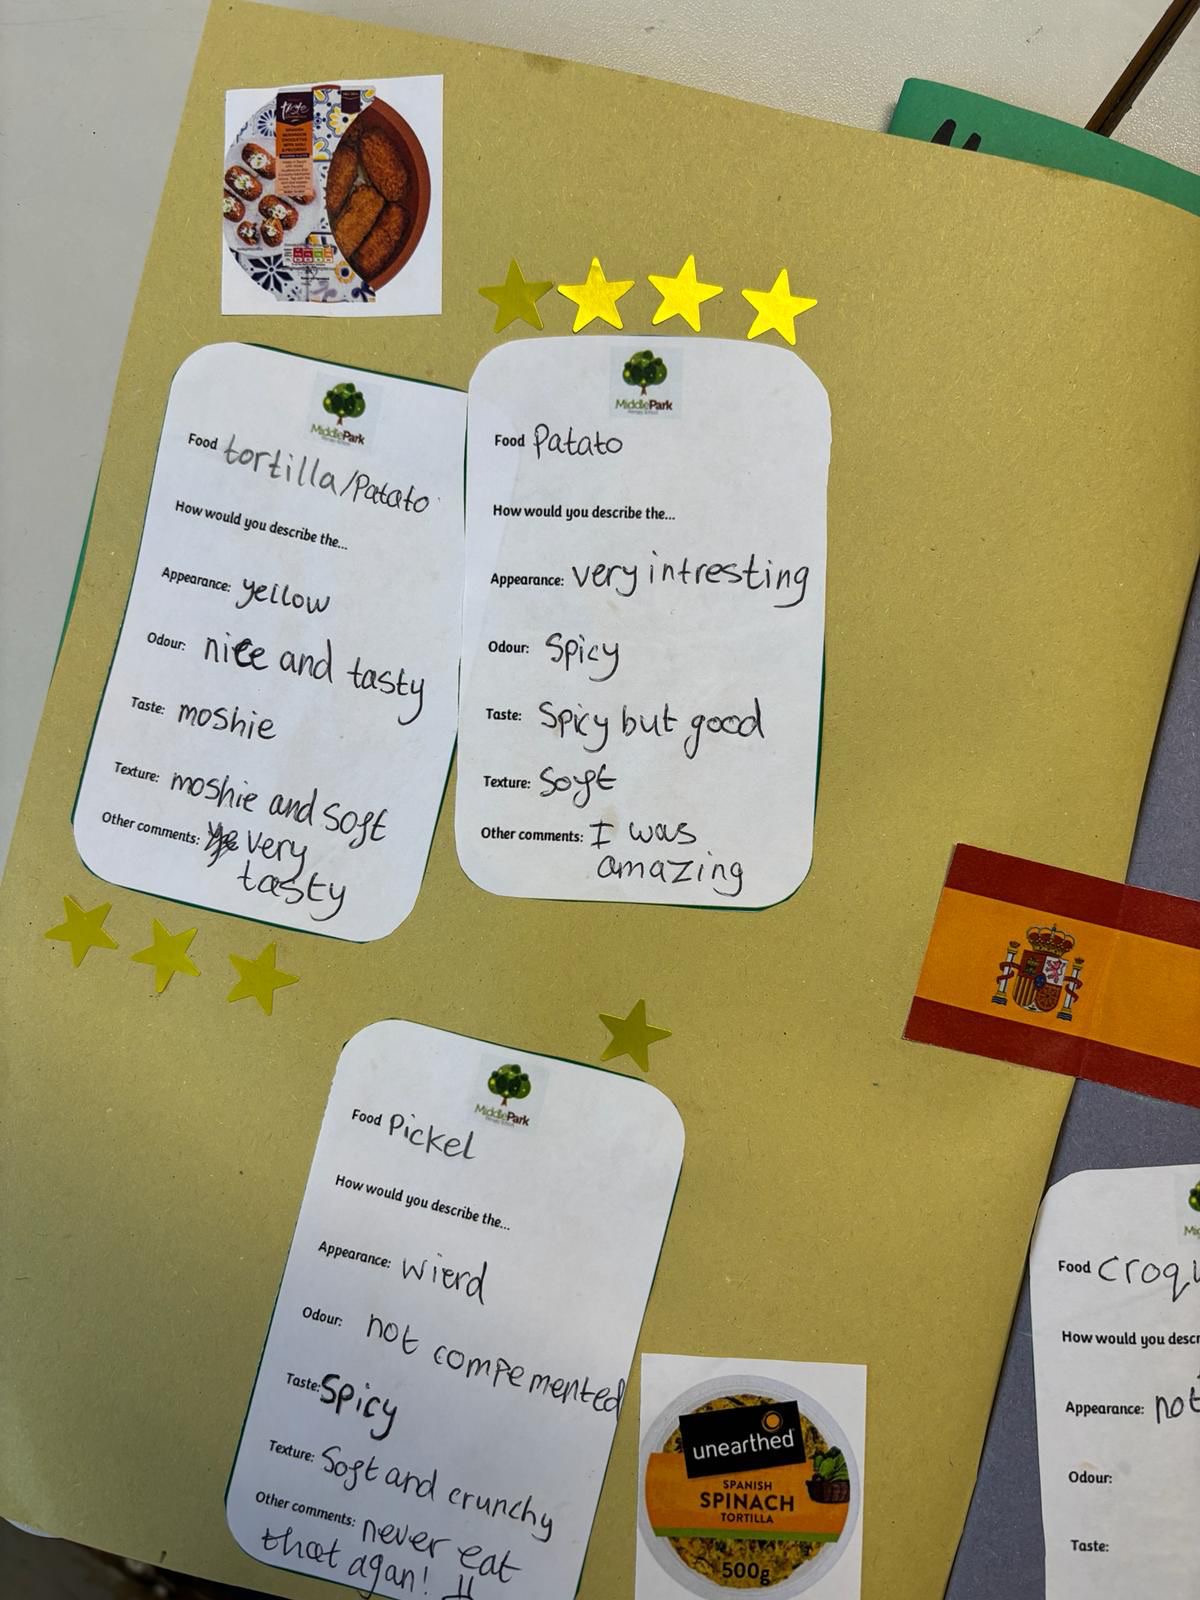 Taste
SPANISH
MUSHROOM
CROQUETAS
WITH AIOLI
& PECORINO
MiddlePark
Food tortilla/Patato
How would you describe the...
Appearance: yellow
Odour: nice and tasty
Taste: moshie
Texture: moshie and soft
Other comments: very
tasty
MiddlePark
Food Patato
How would you describe the...
Appearance: very intresting
Odour: Spicy
Taste: Spicy but good
Texture: Soft
Other comments: I was
amazing
MiddlePark
Food Pickel
How would you describe the...
Appearance: wierd
Odour: not compemented
Taste: Spicy
Texture: Soft and crunchy
Other comments: never eat
that agan! !!
unearthed
SPANISH
SPINACH
TORTILLA
500g
Food croqu
How would you descr
Appearance: not
Odour:
Taste: